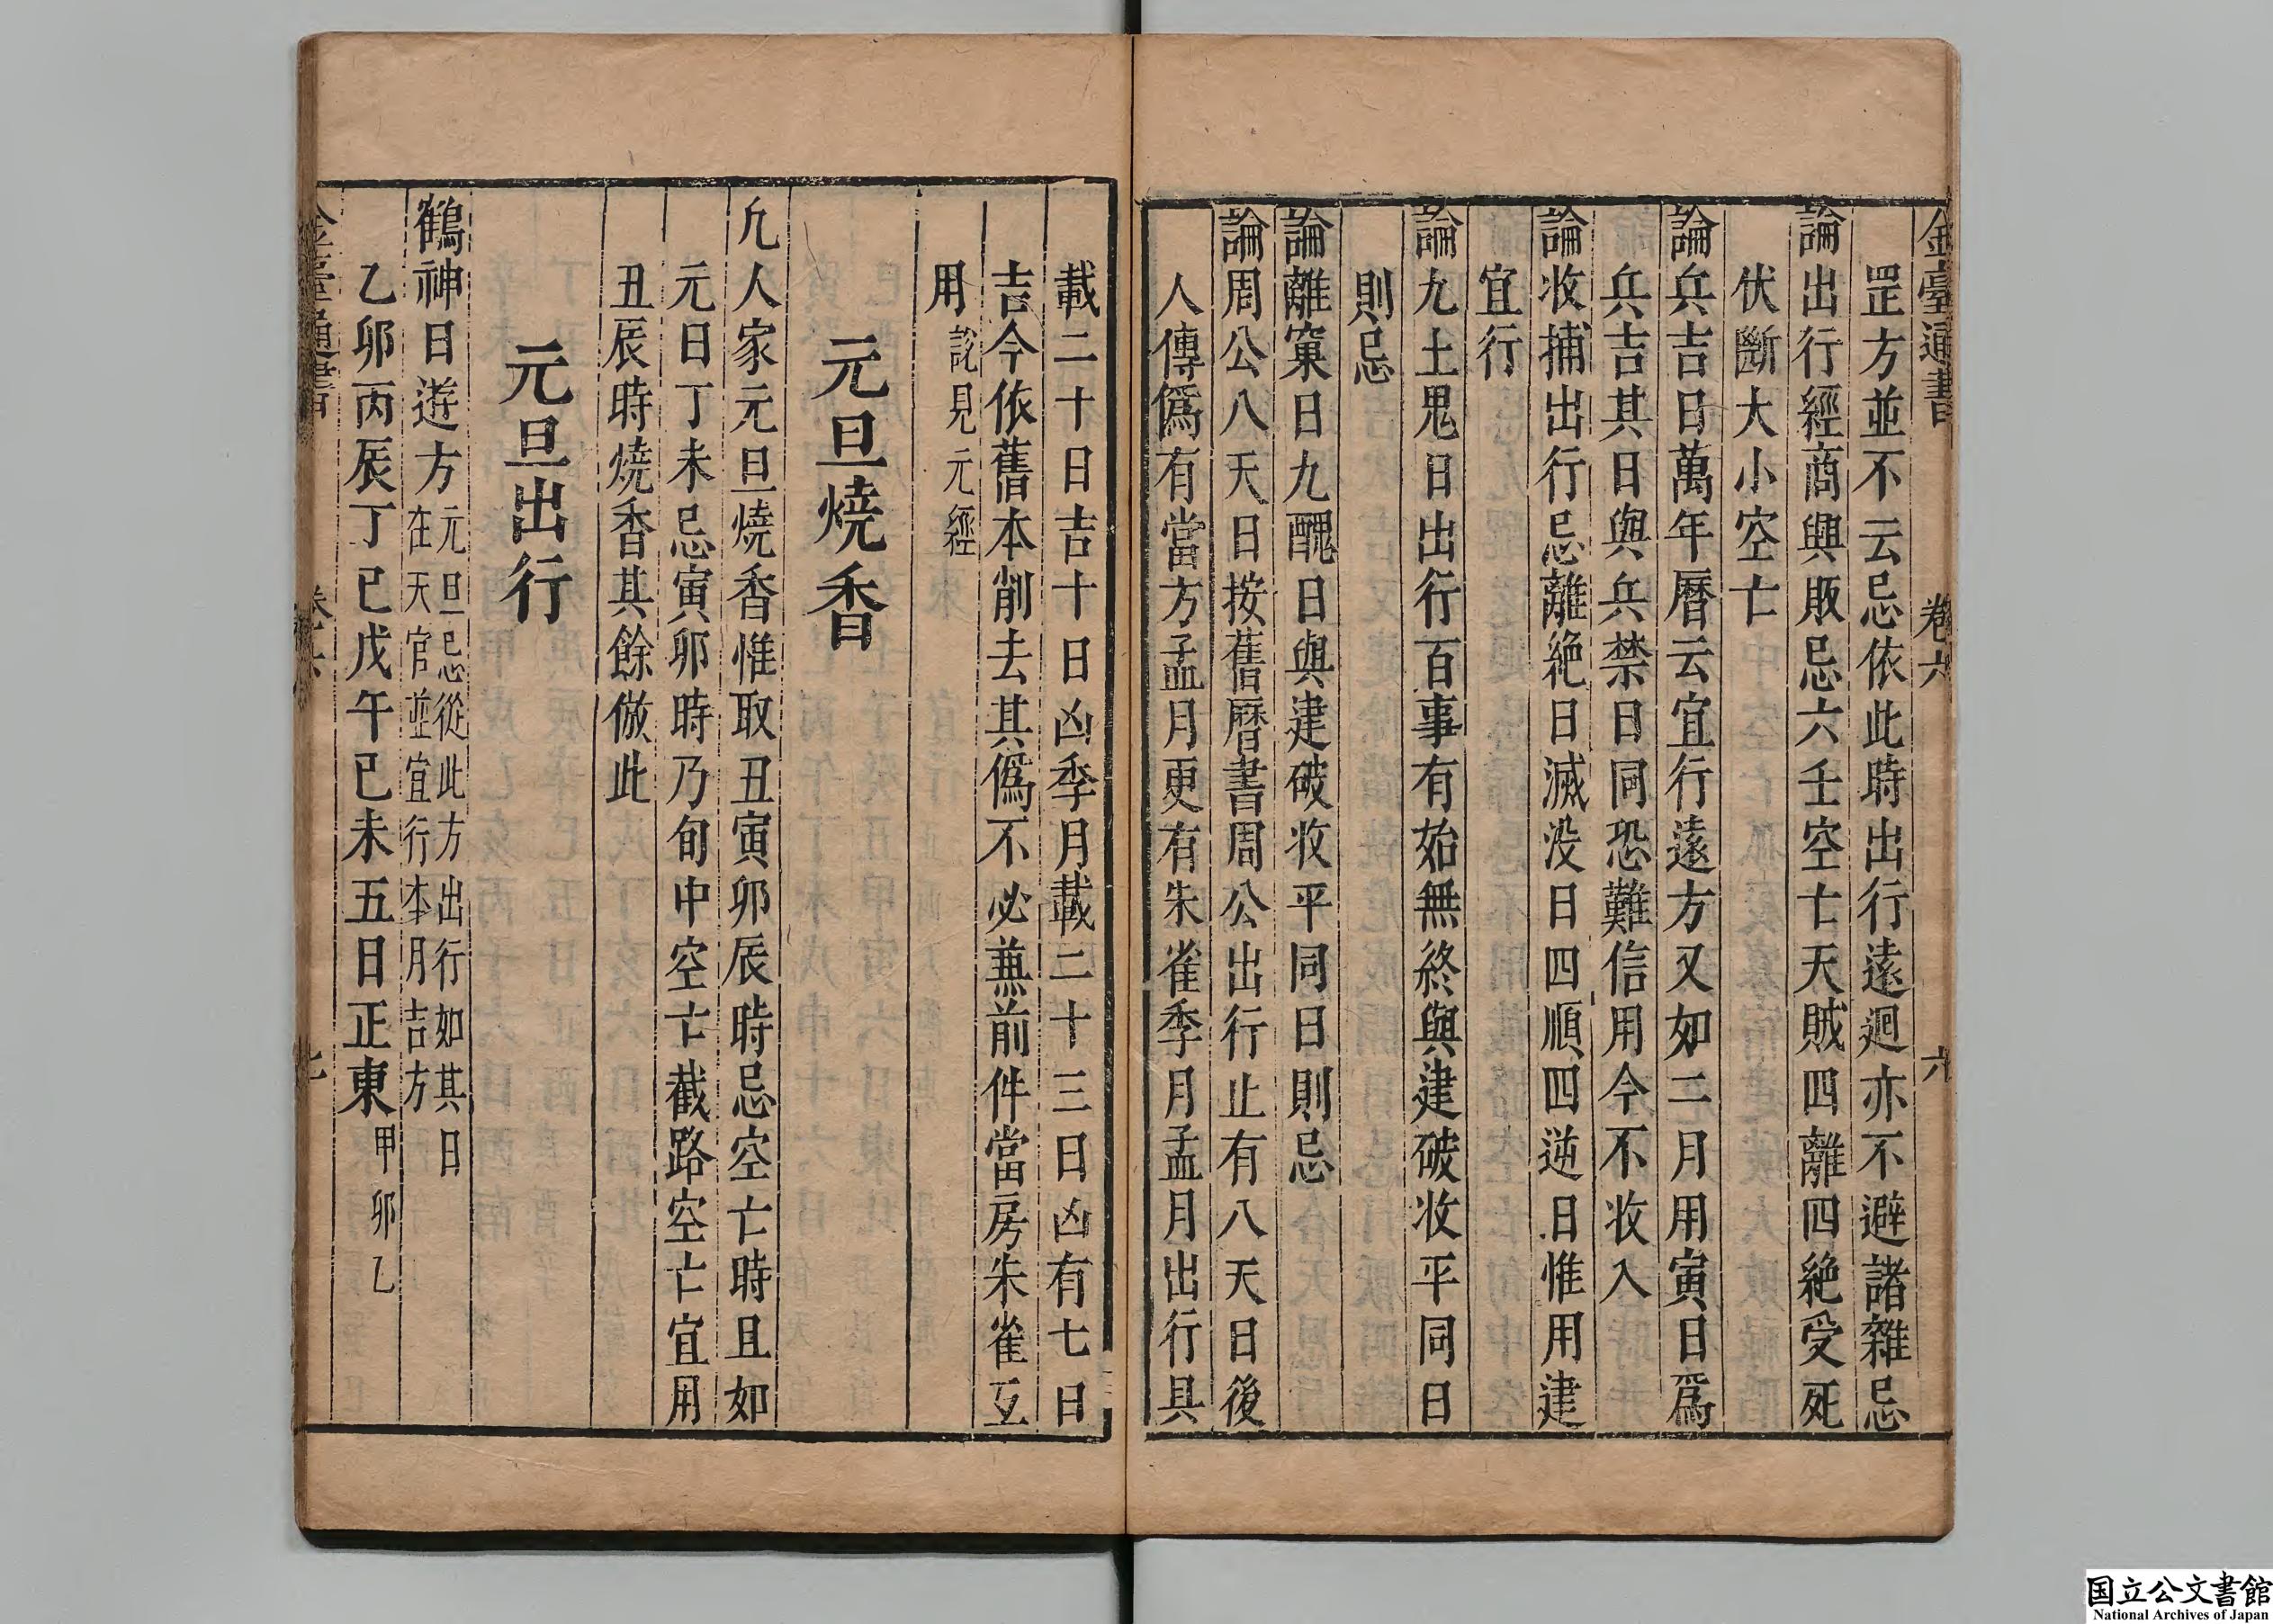 金臺通書 卷六 六
罡方並不云忌依此時出行遠迴亦不避諸雜忌
論出行經商興敗忌六壬空亡天賊四離四絶受死
伏斷大小空亡
論兵吉日萬年曆云宜行遠方又如二月用寅日爲
兵吉其日與兵禁日同恐難信用今不收入
論收捕出行忌離絶日滅没日四順四逆日惟用建
宜行
論九土鬼日出行百事有始無終與建破收平同日
則忌
論離窠日九醜日與建破收平同日則忌
論周公八天日按舊曆書周公出行止有八天日後
人傳僞有當方孟月更有朱雀季月孟月出行具
載二十日吉十日凶季月載二十三日凶有七日
吉今依舊本削去其僞不必兼前件當房朱雀互
用說見元經
元旦燒香
凢人家元旦燒香惟取丑寅卯辰時忌空亡時且如
元日丁未忌寅卯時乃旬中空亡截路空亡宜用
丑辰時燒香其餘倣此
元旦出行
鶴神日遊方元旦忌從此方出行如其日
在天官並宜行本月吉方
乙卯丙辰丁巳戊午己未五日正東甲卯乙